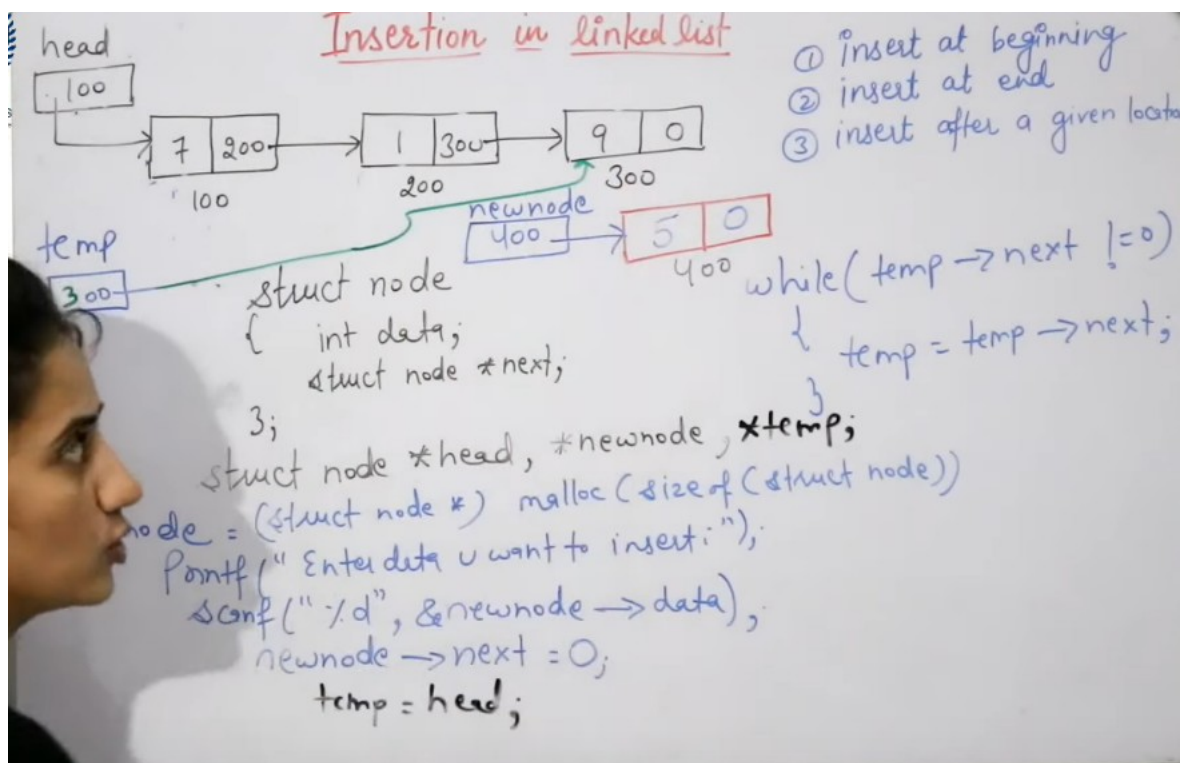 Insertion in linked list
head
100
7 200
100
1 300
200
9 0
300
① insert at beginning
② insert at end
③ insert after a given
temp
300
newnode
400
5 0
400
struct node
{ int data;
struct node *next;
};
struct node *head, *newnode, *temp;
node = (struct node *) malloc(sizeof(struct node))
Printf("Enter data u want to insert:");
scanf("%d", &newnode → data);
newnode → next = 0;
temp = head;
while(temp → next != 0)
{
temp = temp → next;
}